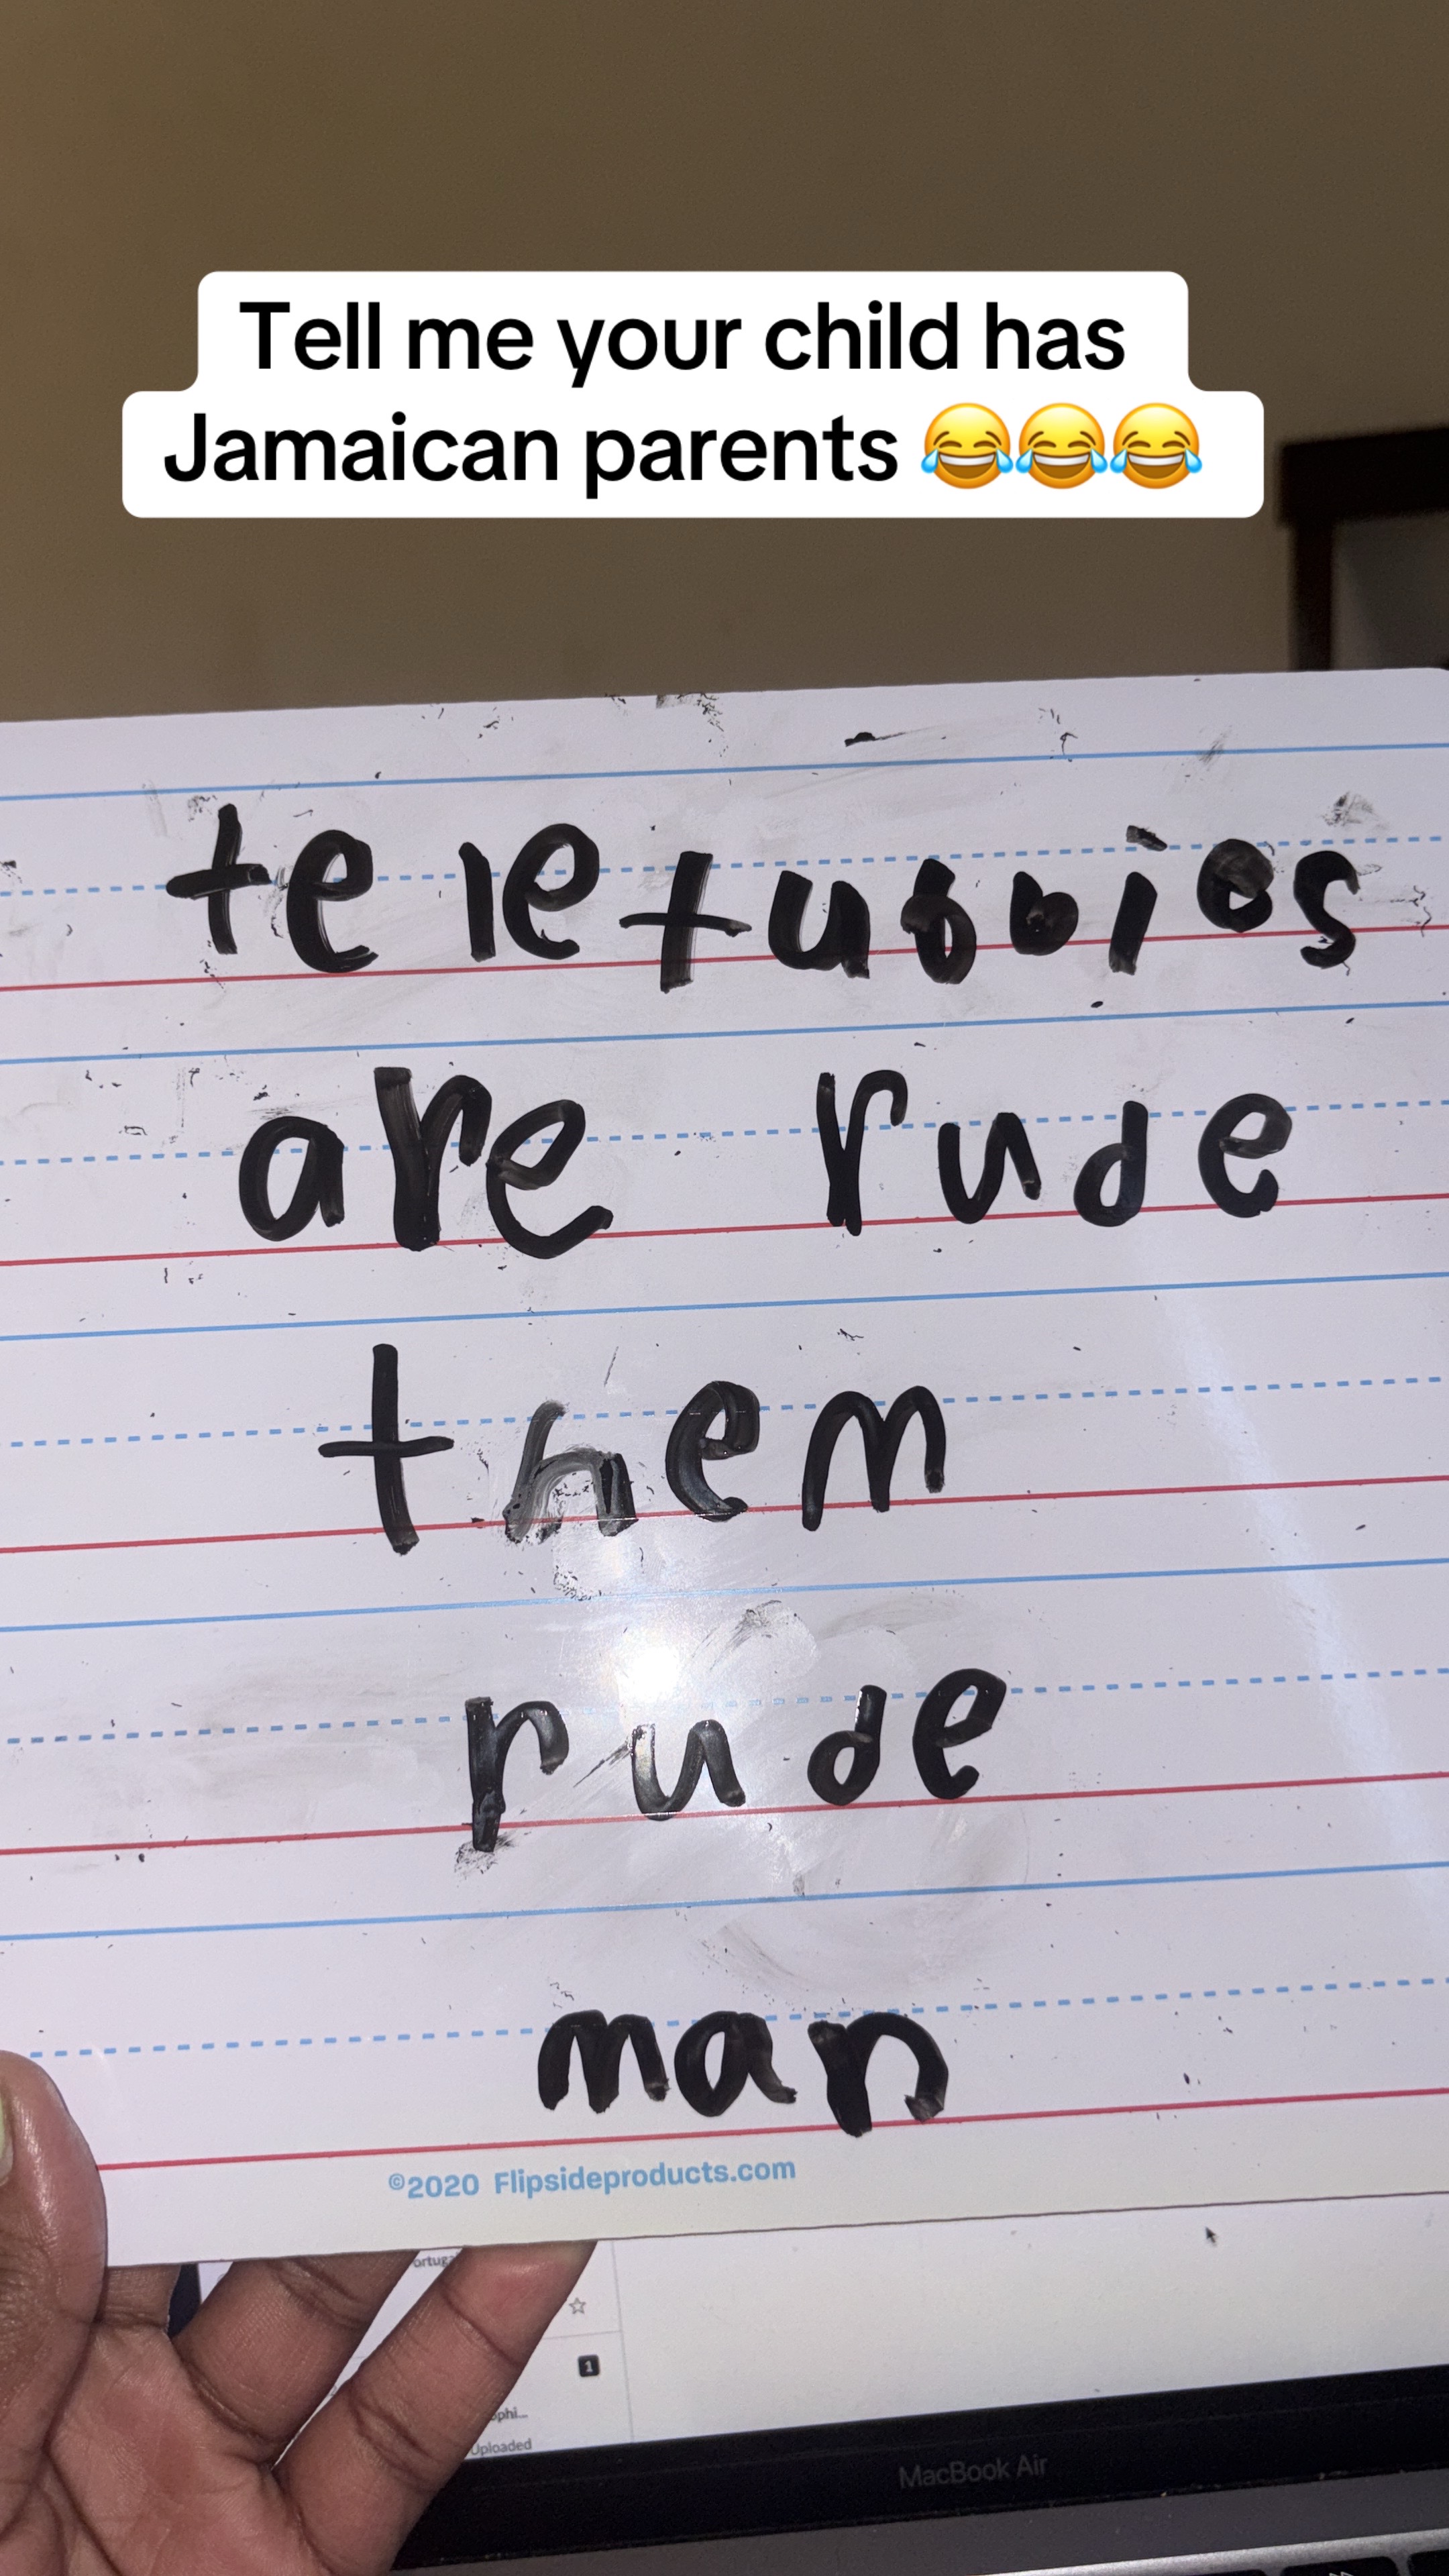 Tell me your child has
Jamaican parents 😂😂😂
teletubbies
are rude
them
rude
man
©2020 Flipsideproducts.com
1
Uploaded
MacBook Air